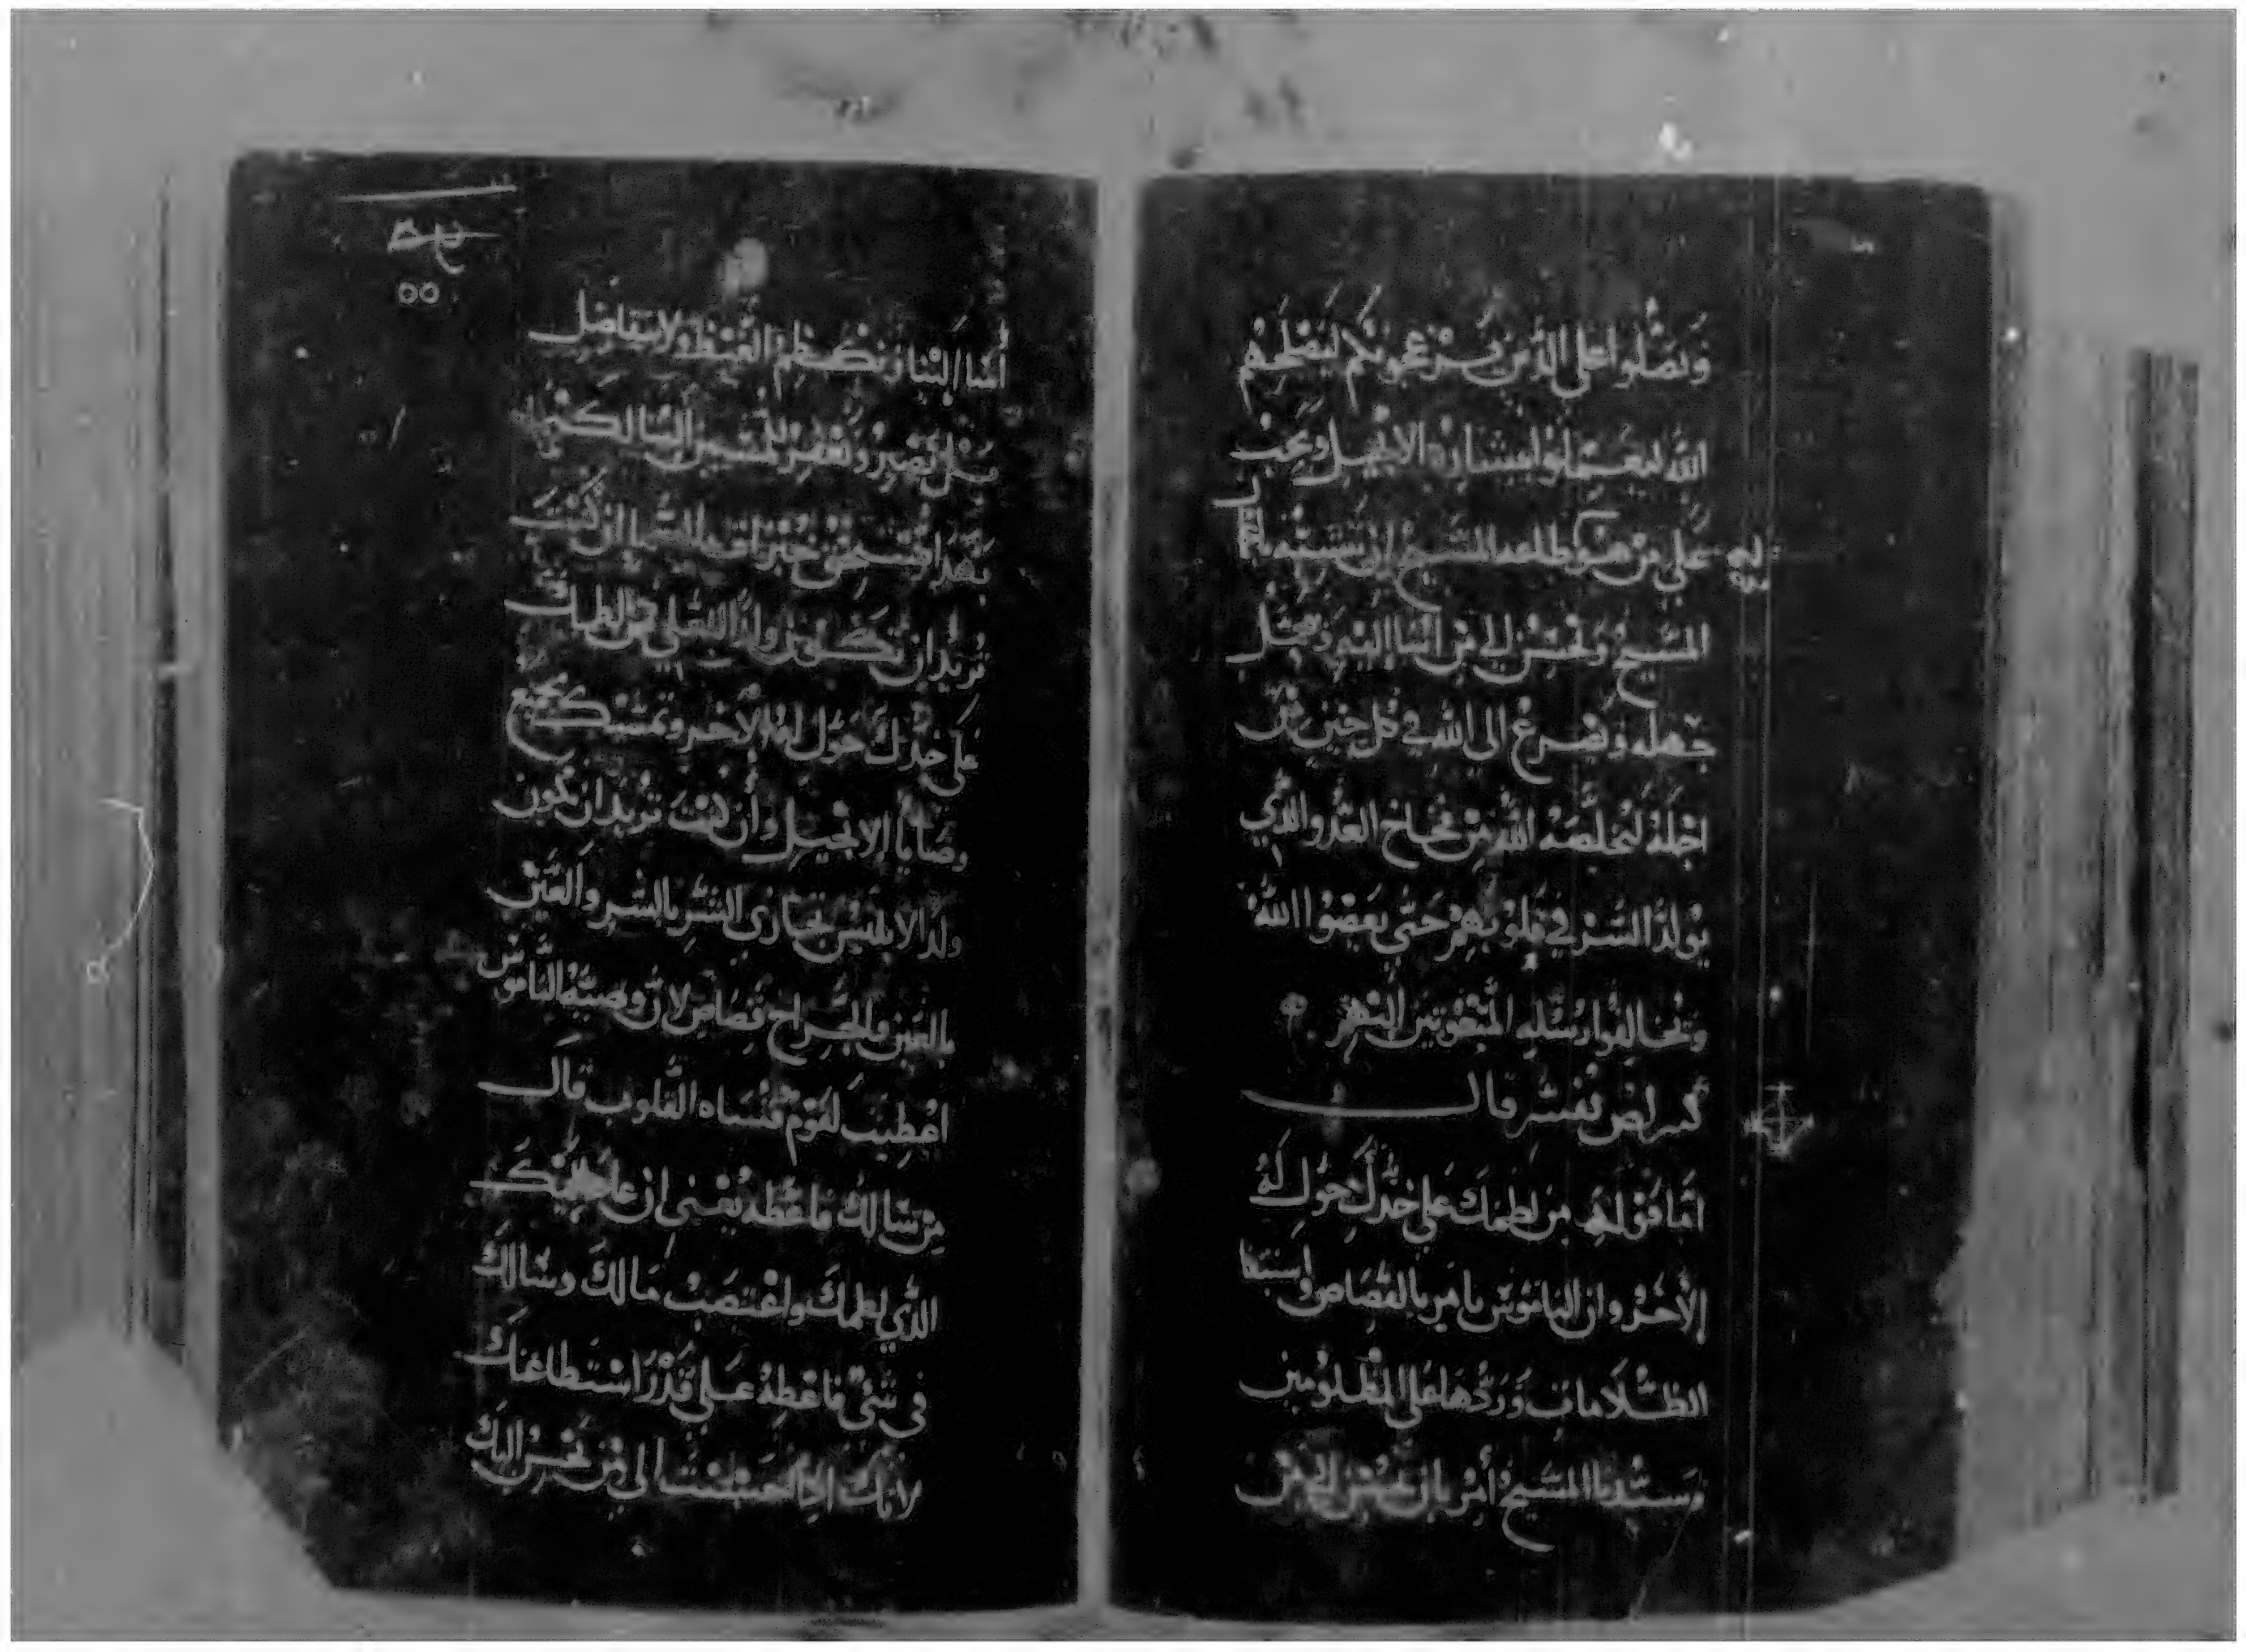 وتصلوا على الذين يزعجونكم ليصلحهم
الله ليعملوا بشارة الانجيل ويجب
على من هو كطلعه المسيح ان يتشبه بالسيد
المسيح ويحسن الى من اسا اليه ويحتمل
جهله ويفزع الى الله في كل حين من
اجله ليخلصه الله من فخاخ العدو الذي
يولد الشر في قلوبهم حتى يعصوا الله
ويخالفوا رسله المبعوثين اليهم
كيرلص يفسر قال
اما قوله من لطمك على خدك حول له
الاخر وان الناموس يامر بالقصاص
الظلامات وردها على المظلومين
وسيدنا المسيح أمر بان نحسن الى من
أسا الينا ونكظم الغيظ ولا نتفاضل
بل نصبر ونغفر للمسيين الينا لكيما
بهذا نستحق خيرات السما ان كنت
تريد ان تكون ولد الله العلي من لطمك
على خدك حول له الاخر وتمسك بجميع
وصايا الانجيل وأن كنت تريد ان تكون
ولد الابليس تجازى الشر بالشر والعين
بالعين والجراح قصاص لان وصية الناموس
اعطيت لقوم قساه القلوب قال
من سالك فاعطه يعني ان
الذي لطمك واغتصب مالك وسالك
في شي فاعطه على قدر استطاعتك
لانك اذا احسنت الى من تحسن اليك